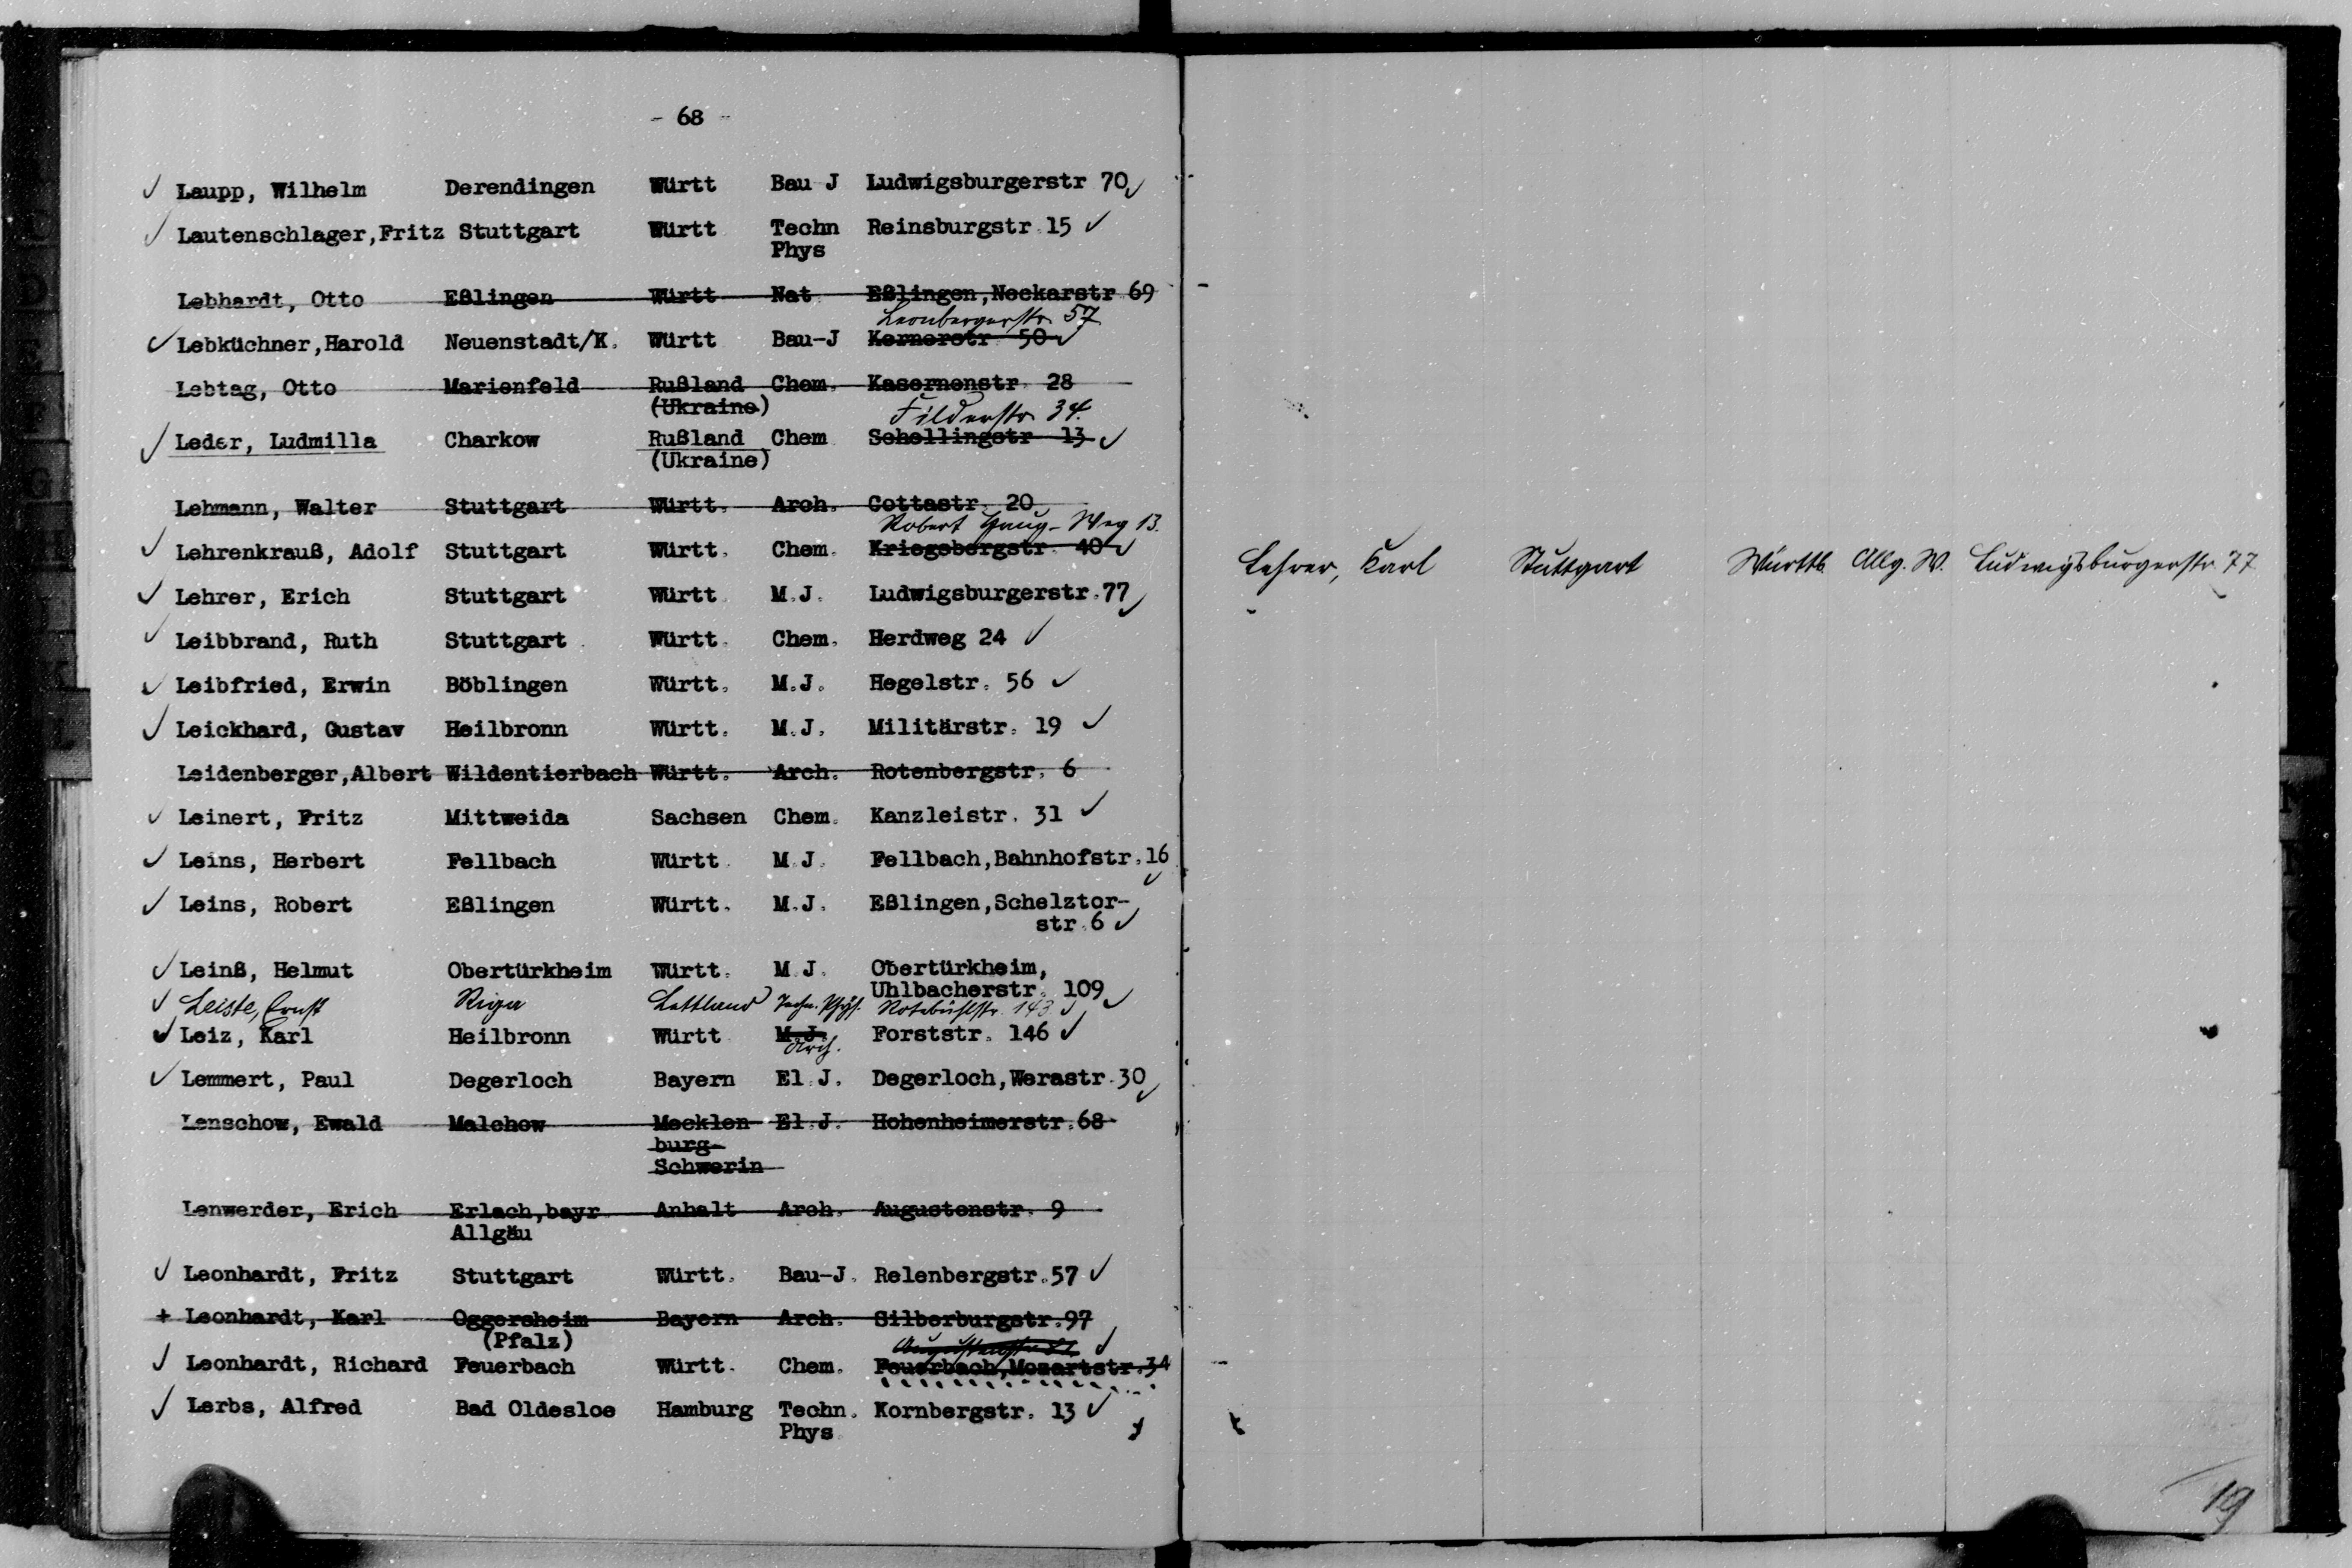 - 68 -
✓ Laupp, Wilhelm Derendingen Württ Bau J Ludwigsburgerstr 70 ✓
✓ Lautenschlager,Fritz Stuttgart Württ Techn Reinsburgstr. 15 ✓
Phys
Lebhardt, Otto Eßlingen Württ Nat Eßlingen,Neckarstr 69
Leonbergerstr. 57
✓ Lebküchner,Harold Neuenstadt/K. Württ Bau-J Kernerstr 50 ✓
Lebtag, Otto Marienfeld Rußland Chem. Kasernenstr. 28
(Ukraine)
Filderstr. 34.
✓ Leder, Ludmilla Charkow Rußland Chem Schellingstr 13 ✓
(Ukraine)
Lehmann, Walter Stuttgart Württ. Arch. Cottastr. 20
Robert Haug-Weg 13.
✓ Lehrenkrauß, Adolf Stuttgart Württ. Chem. Kriegsbergstr. 40 ✓
✓ Lehrer, Erich Stuttgart Württ M.J. Ludwigsburgerstr.77 ✓
✓ Leibbrand, Ruth Stuttgart Württ. Chem. Herdweg 24 ✓
✓ Leibfried, Erwin Böblingen Württ. M.J. Hegelstr. 56 ✓
✓ Leickhard, Gustav Heilbronn Württ. M.J. Militärstr. 19 ✓
Leidenberger,Albert Wildentierbach Württ. Arch. Rotenbergstr. 6
✓ Leinert, Fritz Mittweida Sachsen Chem. Kanzleistr. 31 ✓
✓ Leins, Herbert Fellbach Württ M J. Fellbach,Bahnhofstr.16 ✓
✓ Leins, Robert Eßlingen Württ. M.J. Eßlingen,Schelztor-
str.6 ✓
✓ Leinß, Helmut Obertürkheim Württ. M J. Obertürkheim,
Uhlbacherstr. 109 ✓
✓ Leiste, Ernst Riga Lettland Techn. Phys. Rotebühlstr. 143 ✓
✓ Leiz, Karl Heilbronn Württ M.J. Forststr. 146 ✓
Arch.
✓ Lemmert, Paul Degerloch Bayern El J. Degerloch,Werastr.30 ✓
Lenschow, Ewald Malchow Mecklen- El.J. Hohenheimerstr.68
burg-
Schwerin
Lenwerder, Erich Erlach,bayr Anhalt Arch. Augustenstr. 9
Allgäu
✓ Leonhardt, Fritz Stuttgart Württ. Bau-J. Relenbergstr.57 ✓
+ Leonhardt, Karl Oggersheim Bayern Arch. Silberburgstr.97
(Pfalz)
✓ Leonhardt, Richard Feuerbach Württ. Chem. Feuerbach,Mozartstr.34
✓ Lerbs, Alfred Bad Oldesloe Hamburg Techn. Kornbergstr. 13 ✓
Phys
Lehrer, Karl Stuttgart Württb. Allg. W. Ludwigsburgerstr. 77
19